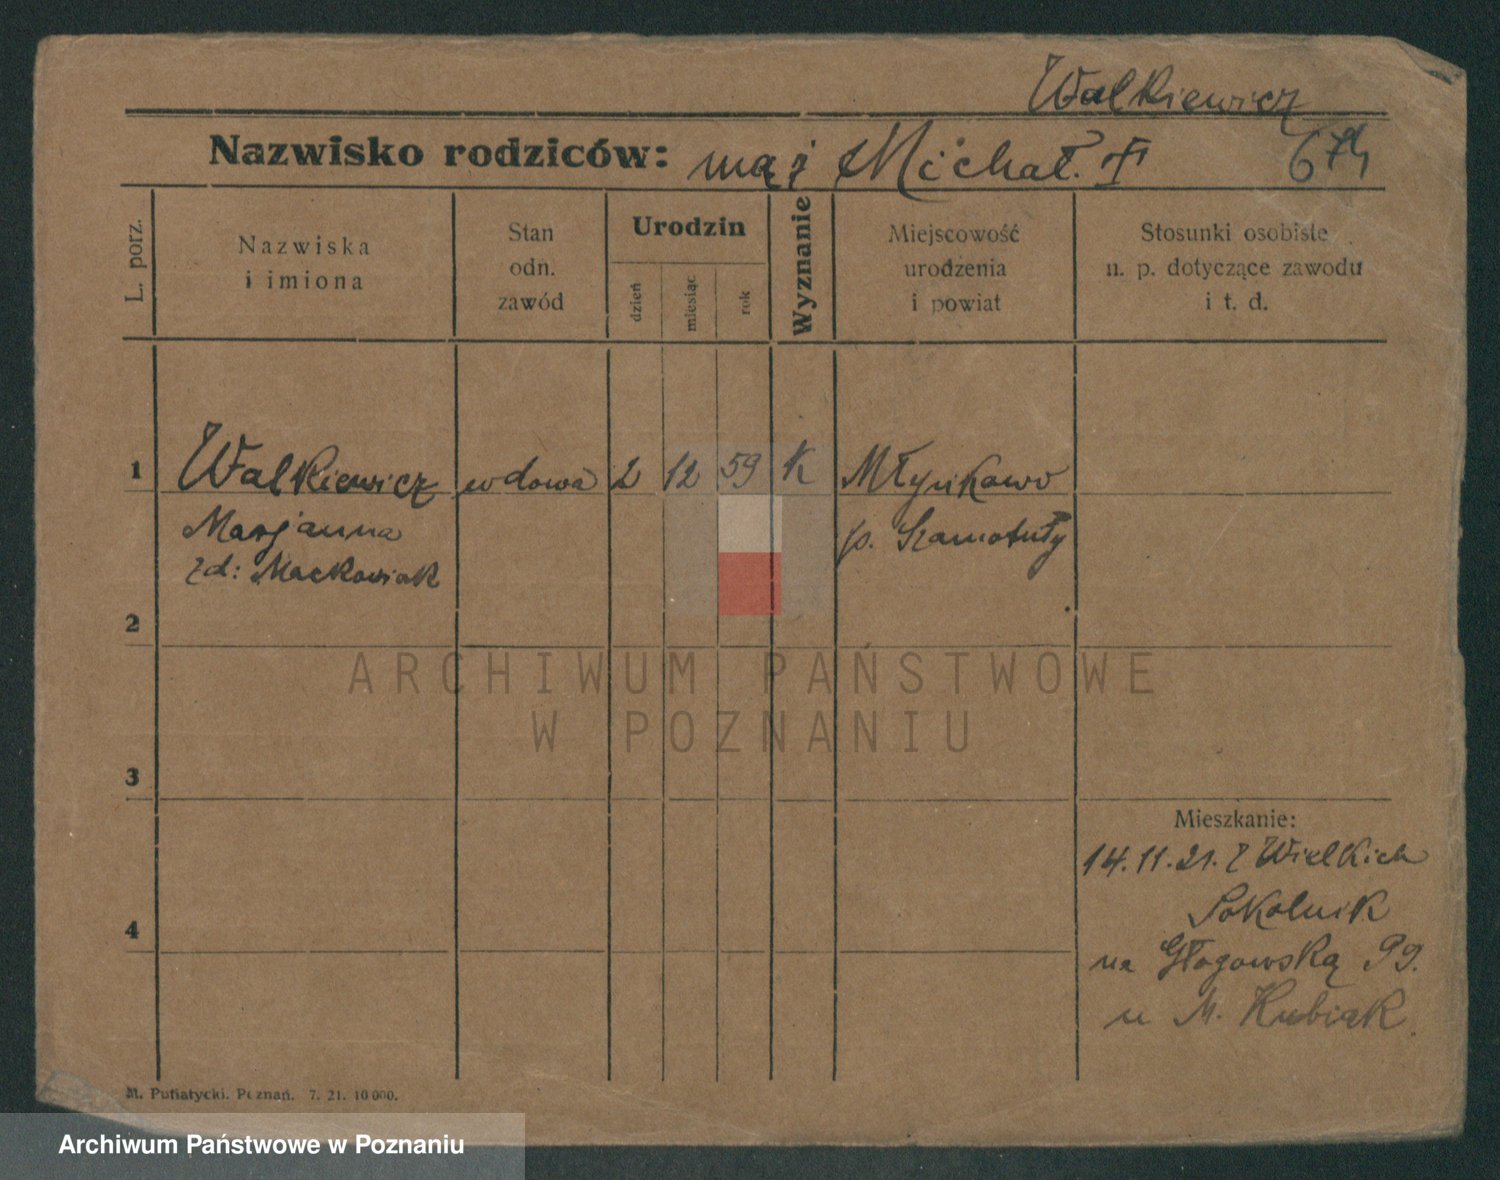 Walkiewicz
Nazwisko rodziców: mąż Michał. †
674
L. porz.
Nazwiska
i imiona
Stan
odn.
zawód
Urodzin
dzień
miesiąc
rok
Wyznanie
Miejscowość
urodzenia
i powiat
Stosunki osobiste
n. p. dotyczące zawodu
i t. d.
1 Walkiewicz wdowa 2 12 59 K Młynkowo
Marjanna p. Szamotuły
zd: Mackowiak
2
3
4
Mieszkanie:
14.11.21. z Wielkich
Sokolnik
na Głogowską 99.
u M. Kubiak.
ARCHIWUM PAŃSTWOWE
W POZNANIU
M. Putiatycki. Poznań. 7. 21. 10 000.
Archiwum Państwowe w Poznaniu